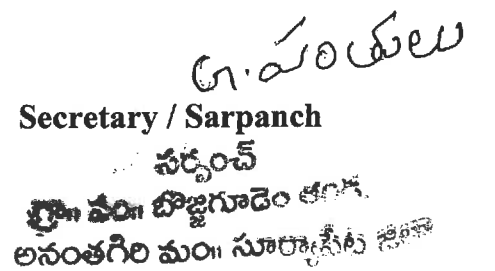 G. పంతులు
Secretary / Sarpanch
సర్పంచ్
గ్రా॥ పం॥ బొజ్జగూడెం తండ
అనంతగిరి మం॥ సూర్యాపేట జిల్లా